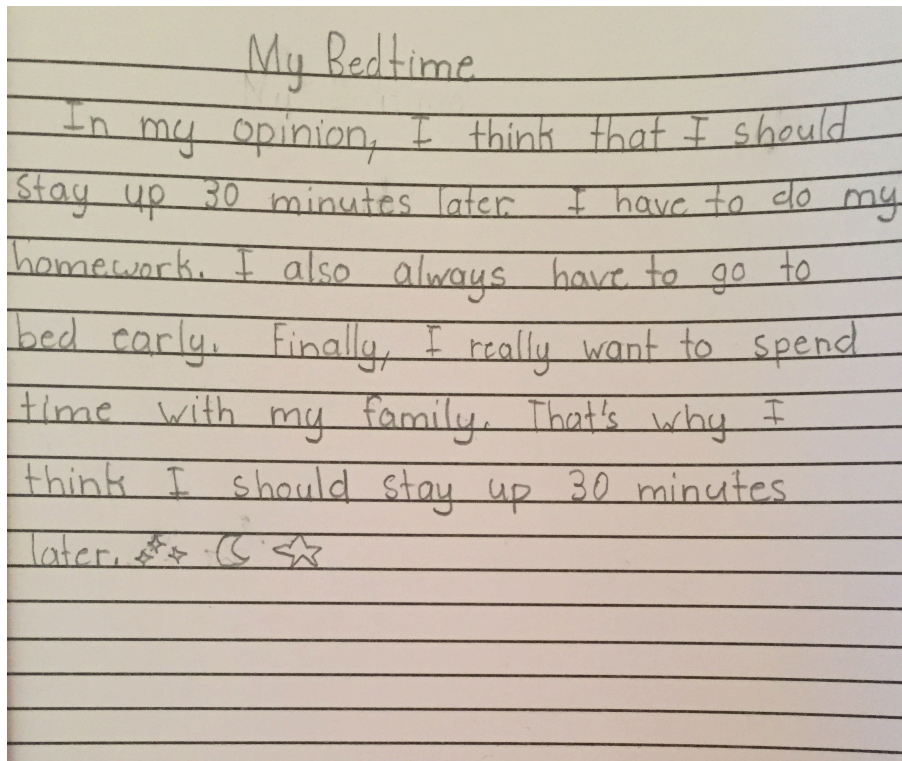 My Bedtime
In my opinion, I think that I should
stay up 30 minutes later. I have to do my
homework. I also always have to go to
bed early. Finally, I really want to spend
time with my family. That's why I
think I should stay up 30 minutes
later.